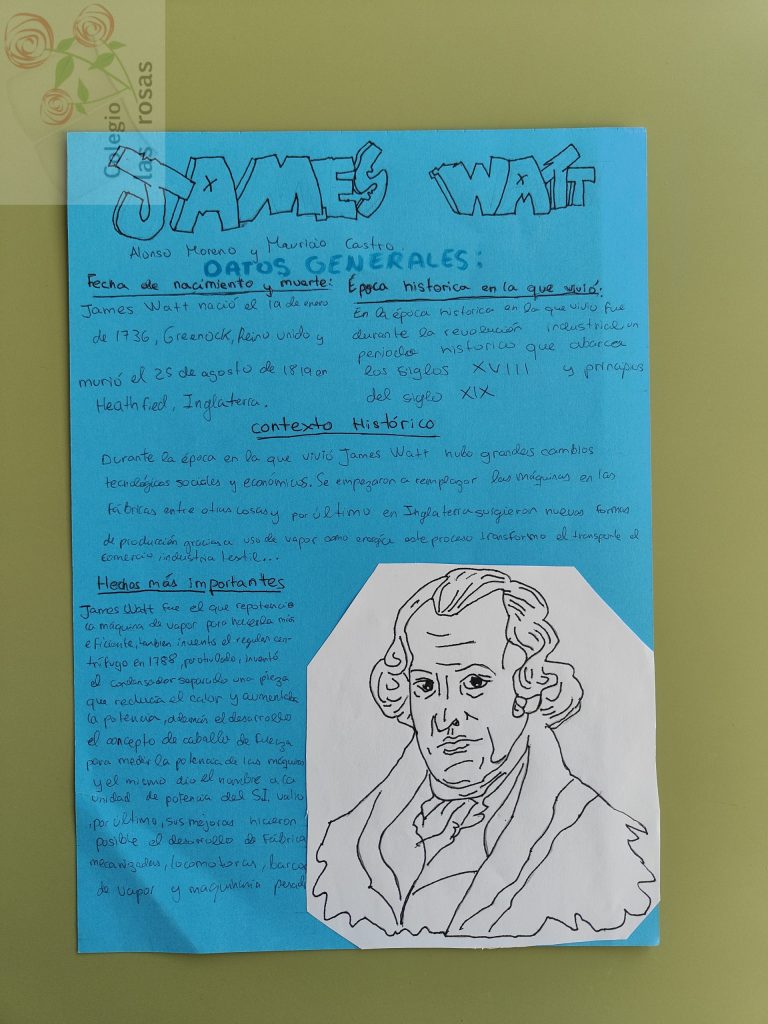 Colegio
las rosas
JAMES WATT
Alonso Moreno y Mauricio Castro
DATOS GENERALES:
Fecha de nacimiento y muerte:
James Watt nació el 19 de enero
de 1736, Greenock, Reino unido y
murió el 25 de agosto de 1819 en
Heathfied, Inglaterra.
Época historica en la que vivió:
En la época historica en la que vivio fue
durante la revolución industrial un
periodo historico que abarca
los siglos XVIII y principios
del siglo XIX
Contexto Histórico
Durante la época en la que vivió James Watt hubo grandes cambios
tecnológicos sociales y económicos. Se empezaron a remplazar las máquinas en las
fábricas entre otras cosas y por último en Inglaterra surgieron nuevas formas
de producción gracias a uso de vapor como energía este proceso transformo el transporte el
comercio industria textil...
Hechos más importantes
James Watt fue el que repotencio
la máquina de vapor para hacerla más
eficiente, tambien invento el regular cen-
trifugo en 1788, por otulado, inventó
el condensador separado una pieza
que reducia el calor y aumentaba
la potencia, además el desarrollo
el concepto de caballo de fuerza
para medir la potencia de las máquinas
y el mismo dio el nombre a la
unidad de potencia del SI, vatio
por último, sus mejoras hicieron
posible el desarrollo de fábrica
mecanizadas, locomotoras, barcos
de vapor y maquinaria pesada